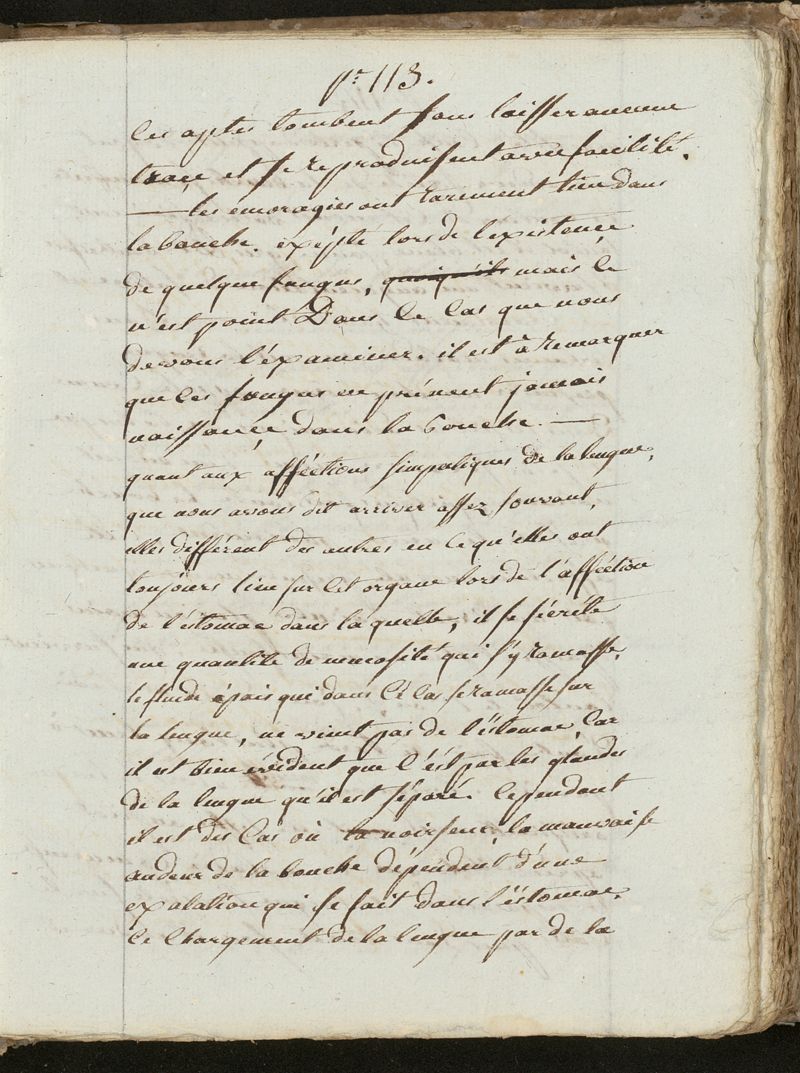 pr 113.
Ces aptes tombent sans laisser aucune
trace et se reproduisent avec facilité.
— les emoragies ont rarement lieu dans
la bouche. exépté lors de l'existence
de quelque fongus, quoiqu'ils mais ce
n'est point Dans ce cas que nous
devons l'éxaminer. il est à remarquer
que ces fongus ne prénent jamais
naissance dans la bouche. —
quant aux afféctions simpatiques de la langue,
que nous avons dit arriver assez souvant,
elles différent des autres en ce qu'elles ont
toujours lieu sur cet organe lors de l'afféction
de l'éstomac dans la quelle, il se sécréte
une quantité de mucosité qui s'y ramasse,
le fluide épais qui dans cé cas se ramasse sur
la langue, ne vient pas de l'éstomac, Car
il est bien évident que c'ést par les glandes
de la langue qu'il est séparé. Cependant
il est des Cas où la noirseur, la mauvaise
audeur de la bouche dépendent d'une
exalation qui se fait dans l'éstomac.
Ce Chargement de la langue par de la